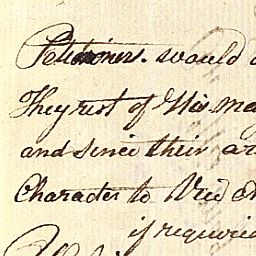 Petitioners would
They rest of His Ma
and since their ar
Character to
if requried